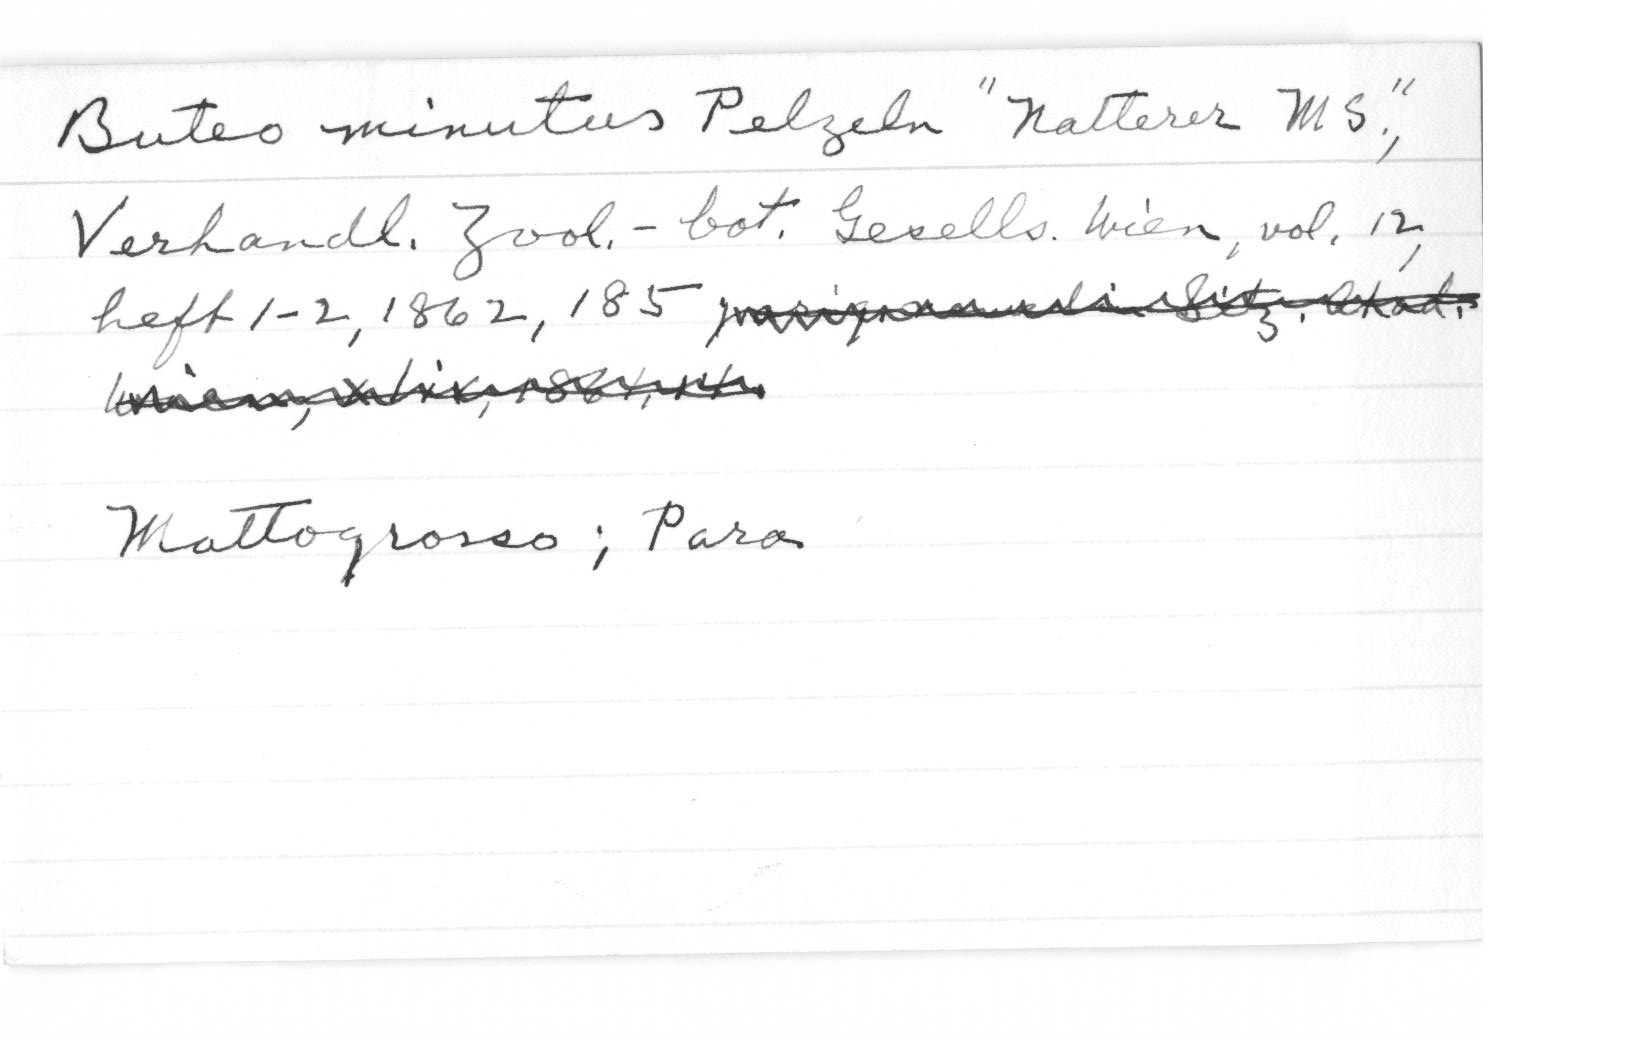 Buteo minutus Pelzeln "Natterer MS.",
Verhandl. Zool.-bot. Gesells. Wien, vol. 12,
heft 1-2, 1862, 185 Sitz. Akad.
Wien, xliv, 1861, 11.
Mattogrosso; Para